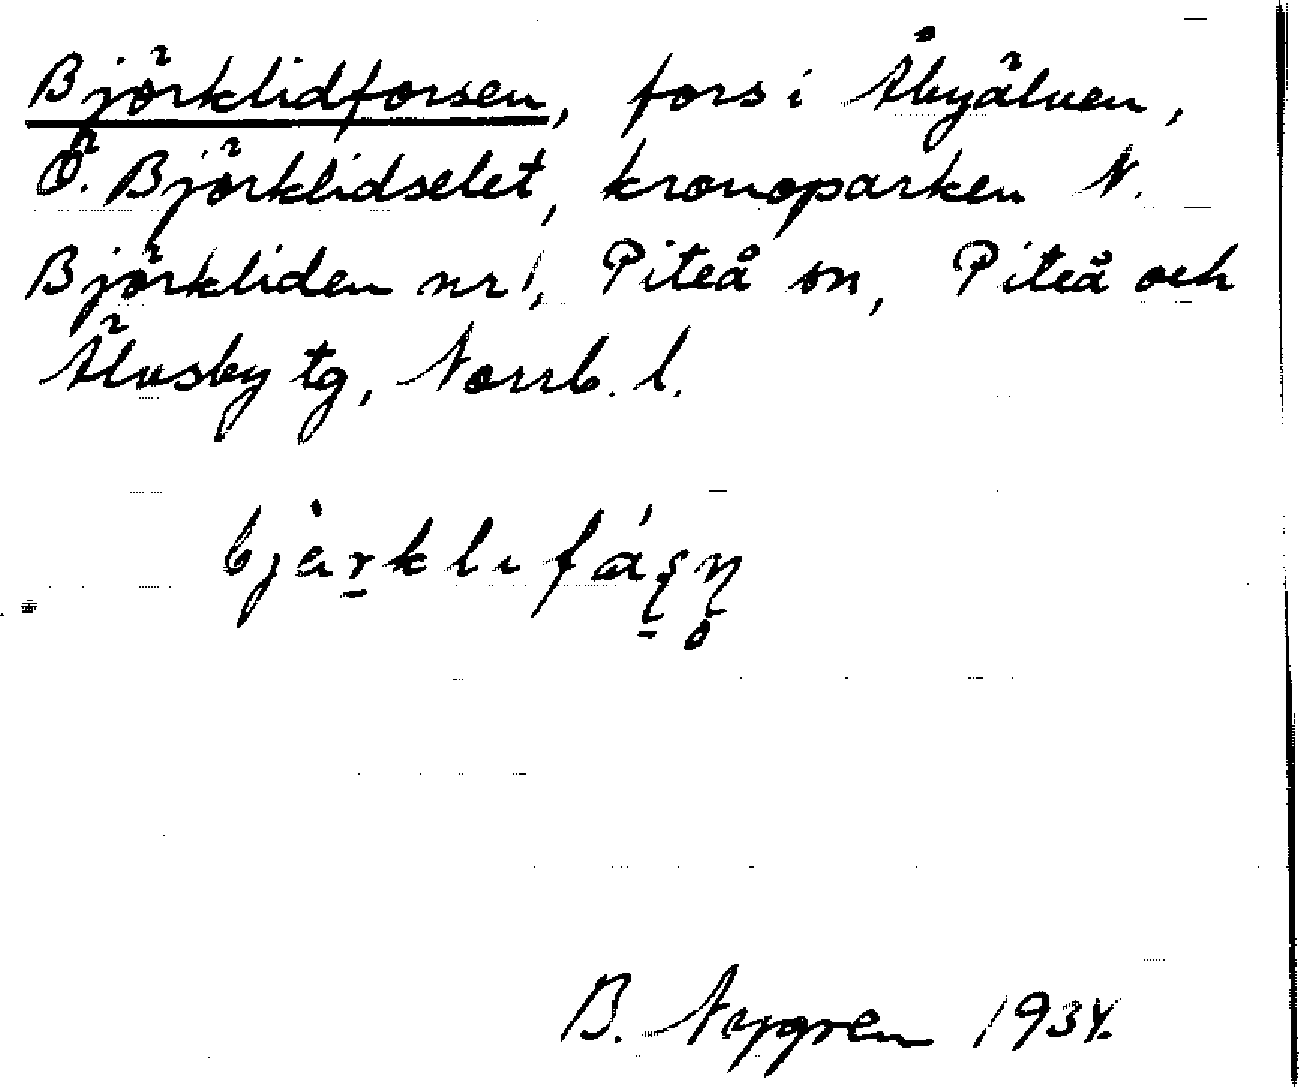 Björklidforsen, fors i Åbyälven,
Ö. Björklidselet, kronoparken N.
Björkliden nr 1, Piteå sn, Piteå och
Älvsby tg, Norrb. l.
bjàrklifáṣṇ̥
B. Nygren 1934.